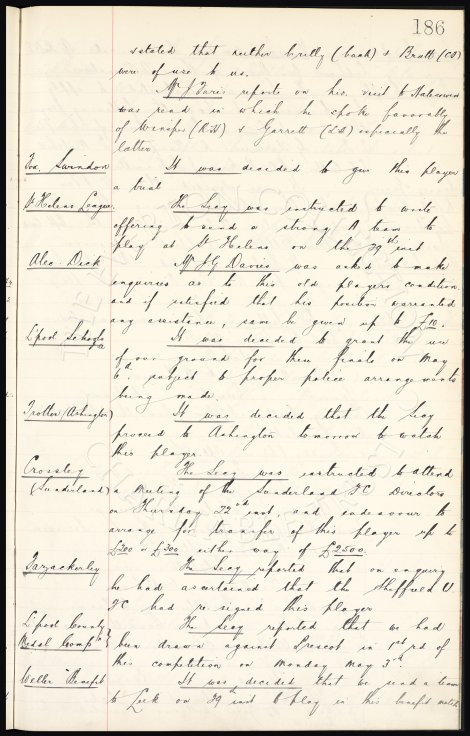 186
stated that neither Critty (back) & Bratt (CH)
were of use to us.
Mr J Fares reports on his visit to Halesowen
was read in which he spoke favorally
of (R.H) & Garrett (I.L) especially the
latter
Swindon It was decided to give this player
a trial
St Helens League. The Secy was instructed to write
offering to send a strong A team to
play at St Helens on the 29th inst
Alec. Dick Mr J G Davies was asked to make
enqueries as to this old players condition
and if satisfied that his position warranted
any assistance, same be given up to £10.
L'pool Schools It was decided to grant the use
of our ground for their finals on May
6th. subject to proper police arrangements
being made.
Trotter (Ashington) It was decided that the Secy
proceed to Ashington tomorrow to watch
this player
Crossley The Secy was instructed to attend
(Sunderland) a meeting of the Sunderland F.C Directors
on Thursday 22nd inst, and endeavour to
arrange for transfer of this player up to
£200 or £300 either way of £2500.
Tarzackerley The Secy reported that on enquiry
he had ascertained that the Sheffield U.
FC had re-signed this player
L'pool County The Secy reported that we had
Medal Compn } been drawn against Prescot in 1st rd of
this competition on Monday May 3rd
Weller Benefit It was decided that we send a team
to Leek on 29th inst to play in this benefit match